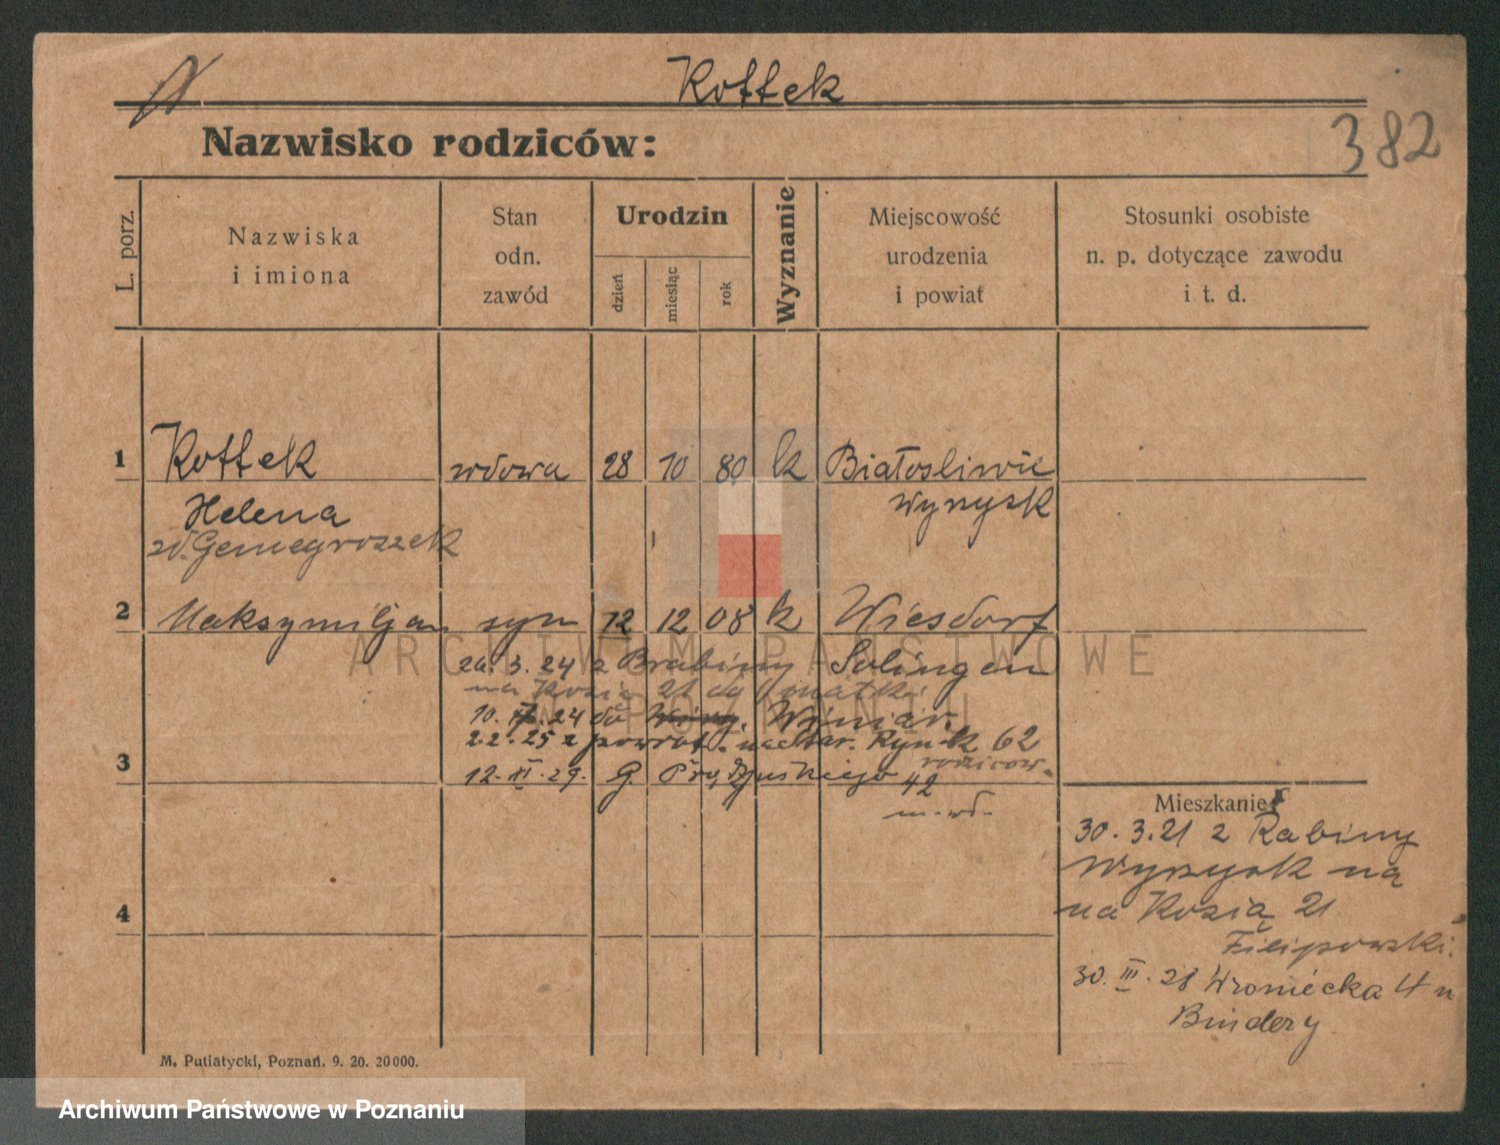 Kottek
Nazwisko rodziców:
382
L. porz.
Nazwiska
i imiona
Stan
odn.
zawód
Urodzin
dzień
miesiąc
rok
Wyznanie
Miejscowość
urodzenia
i powiat
Stosunki osobiste
n. p. dotyczące zawodu
i t. d.
1 Kottek wdowa 28 10 80 k Białosliwie
Helena Wyrzysk
2 Maksymiljan syn 12 12 08 k Wiesdorf
24 z Solingen
na Kozią 21 do matki
24 do
22.25 z powrot. na Star. Rynek 62
3 12. XI. 29. G. 42
Mieszkanie
30.3.21 z Rabiny
Wyrzysk na
na Kozią 21
Filipowski.
30. III. 28 Wroniecka 4 u
Bindery
4
M. Putiatycki, Poznań. 9. 20. 20000.
ARCHIWUM PAŃSTWOWE
W POZNANIU
Archiwum Państwowe w Poznaniu